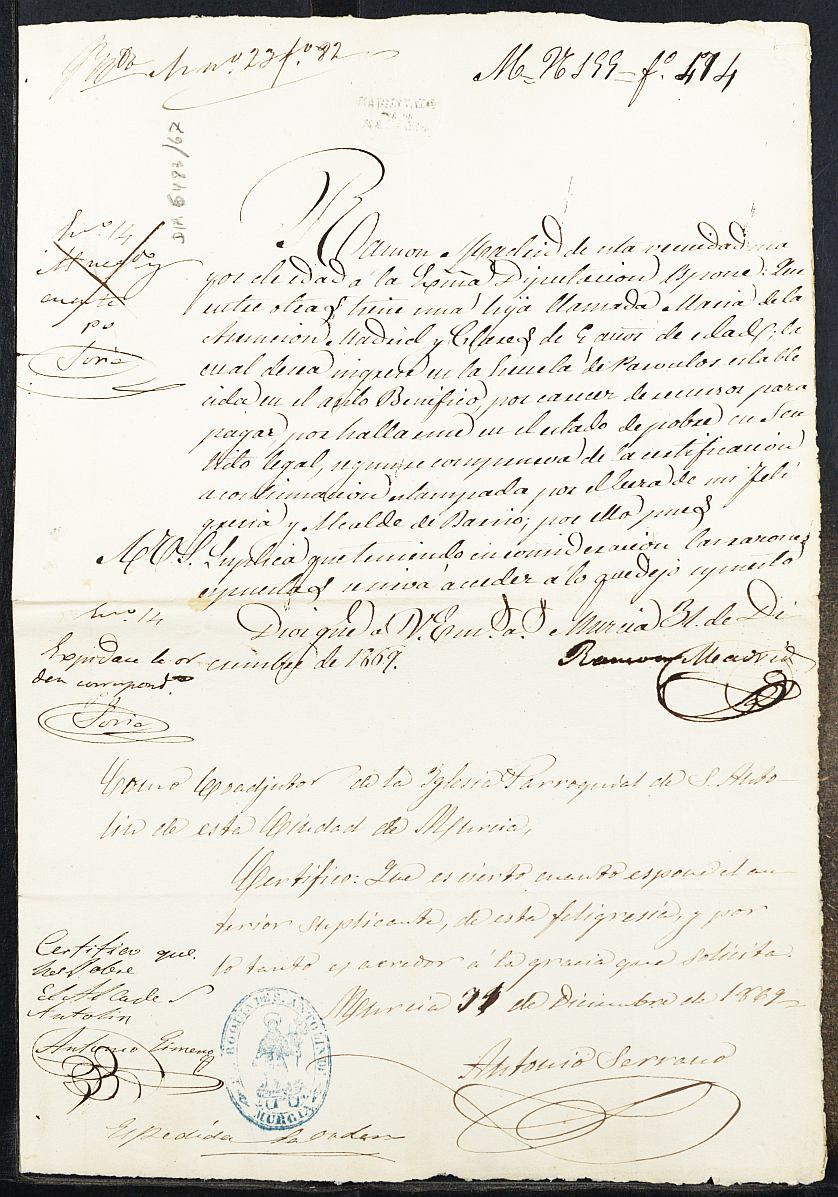 nº. 23 fº. 82
M= N 199= fº. 474
DIP. 6483/67
Enº. 14
cuenta
pº
Soria
Ramon Madrid de esta vecindad
por de edad a la Exmã Diputacion Espone: Que
entre otras tiene una hija llamada Maria de la
Asuncion Madrid y Clares de 5 años de edad, la
cual desea ingrese en la Escuela de Parvulos estable
cida en el asilo Benefico por carecer de recursos para
pagar por hallarme en el estado de pobre en sen
tido legal, segun se comprueva de la certificacion
a continuacion estampada por el Cura de mi Feli
gresia y Alcalde de Barrio; por ello pues
A V.E. Suplica que teniendo en consideracion las razones
espuestas se sirva acceder a lo que dejo espuesto
Dios gũe a V.E. m.s a.s Murcia 31. de Di
ciembre de 1869.
Ramon Madrid
Enº. 14
Expidase la or
den correspond.te
Soria
Como Coadjutor de la Iglesia Parroquial de S. Anto-
lin de esta Ciudad de Murcia,
Certifico: Que es cierto cuanto espone el an-
terior suplicante, de esta feligresía, y por
lo tanto es acredor a la gracia que solicita.
Murcia 31 de Diciembre de 1869
Antonio Serrano
Certifico que
hes Pobre
El Alcade S
Antolin
Antonio Gimenez
S. ANTOLIN
MURCIA
Espedida la orden